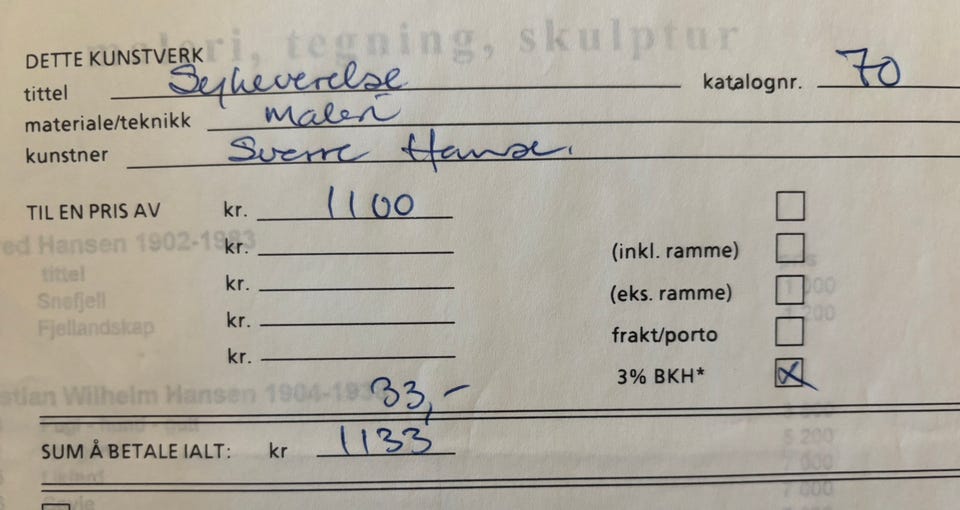 maleri, tegning, skulptur
DETTE KUNSTVERK
tittel Sykeværelse katalognr. 70
materiale/teknikk maleri
kunstner Sverre Hansen.
TIL EN PRIS AV kr. 1100
ed Hansen 1902-1983
kr. (inkl. ramme)
tittel
kr. (eks. ramme)
Snefjell 1 000
kr. frakt/porto
Fjellandskap 200
kr. 3% BKH*
stian Wilhelm Hansen 1904-193
33,-
SUM Å BETALE IALT: kr 1133
5 200
7 000
7 800